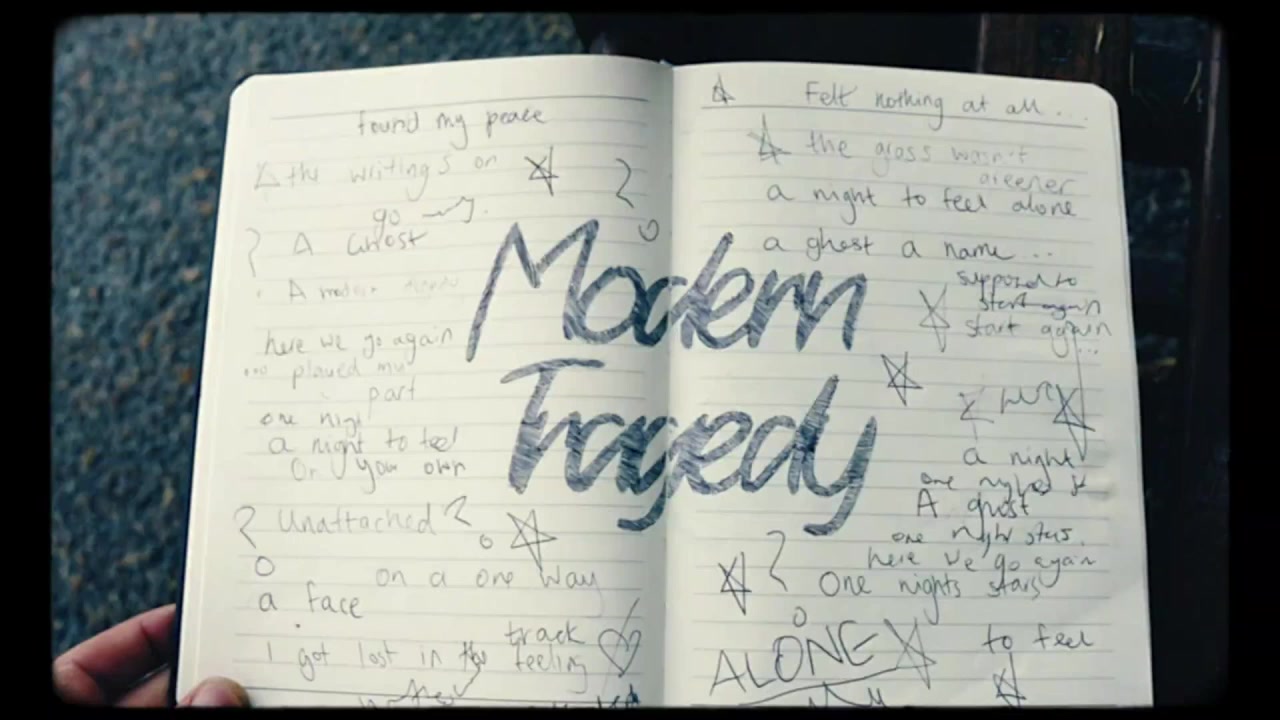 found my peace
the writings on
go
A Ghost
A modern
here we go again
... played my
part
one nigh
a night to feel
On your own
Unattached
on a one way
a face
track
I got lost in the feeling
Modern
Tragedy
Felt nothing at all...
the grass wasn't
greener
a night to feel alone
a ghost a name...
supposed to
start again
start again
...
a night
A ghost
one night stars.
here we go again
One nights stars
ALONE
to feel